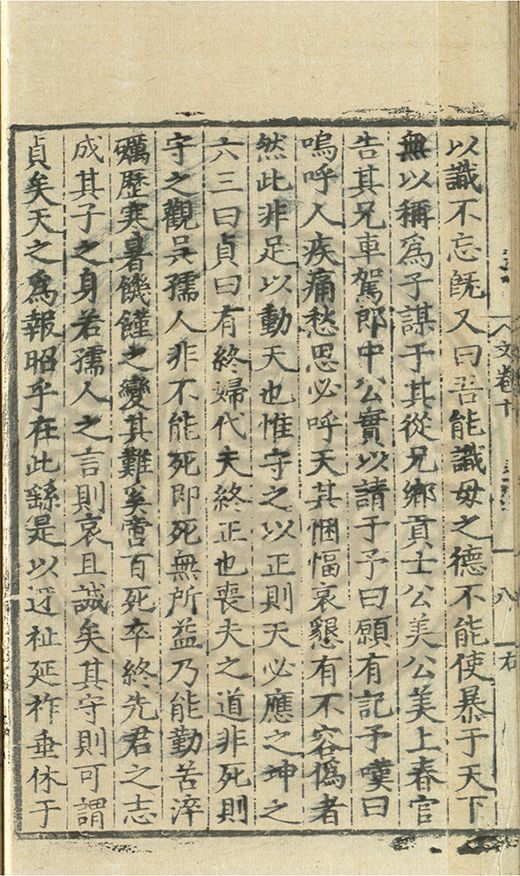 文卷十
八
右
以識不忘旣又曰吾能識母之德不能使暴于天下
無以稱爲子謀于其從兄鄕貢士公美公美上春官
告其兄車駕郎中公實以請于予曰願有記予嘆曰
嗚呼人疾痛愁思必呼天其悃愊哀懇有不容僞者
然此非足以動天也惟守之以正則天必應之坤之
六三曰貞曰有終婦代夫終正也喪夫之道非死則
守之觀吳孺人非不能死即死無所益乃能勤苦淬
礪歷寒暑饑饉之變其難奚啻百死卒終先君之志
成其子之身若孺人之言則哀且誠矣其守則可謂
貞矣天之爲報昭乎在此繇是以迓祉延祚垂休于